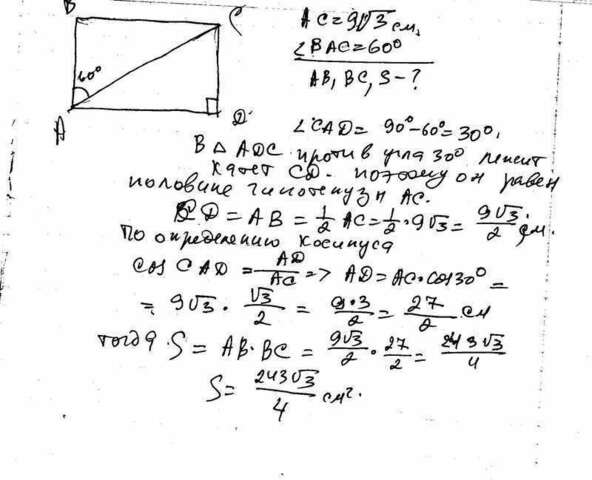 B
C
60°
A
D
AC=9√3 см.
∠BAC=60°
AB, BC, S-?
∠CAD= 90°-60°=30°.
В △ ADC против угла 30° лежит
катет CD. поэтому он равен
половине гипотенузы AC.
CD = AB = 1/2 AC = 1/2 · 9√3 = 9√3/2 см.
По определению косинуса
cos CAD = AD/AC => AD = AC·cos30° =
= 9√3 · √3/2 = 9·3/2 = 27/2 см
тогда S = AB·BC = 9√3/2 · 27/2 = 243√3/4
S = 243√3/4 см².